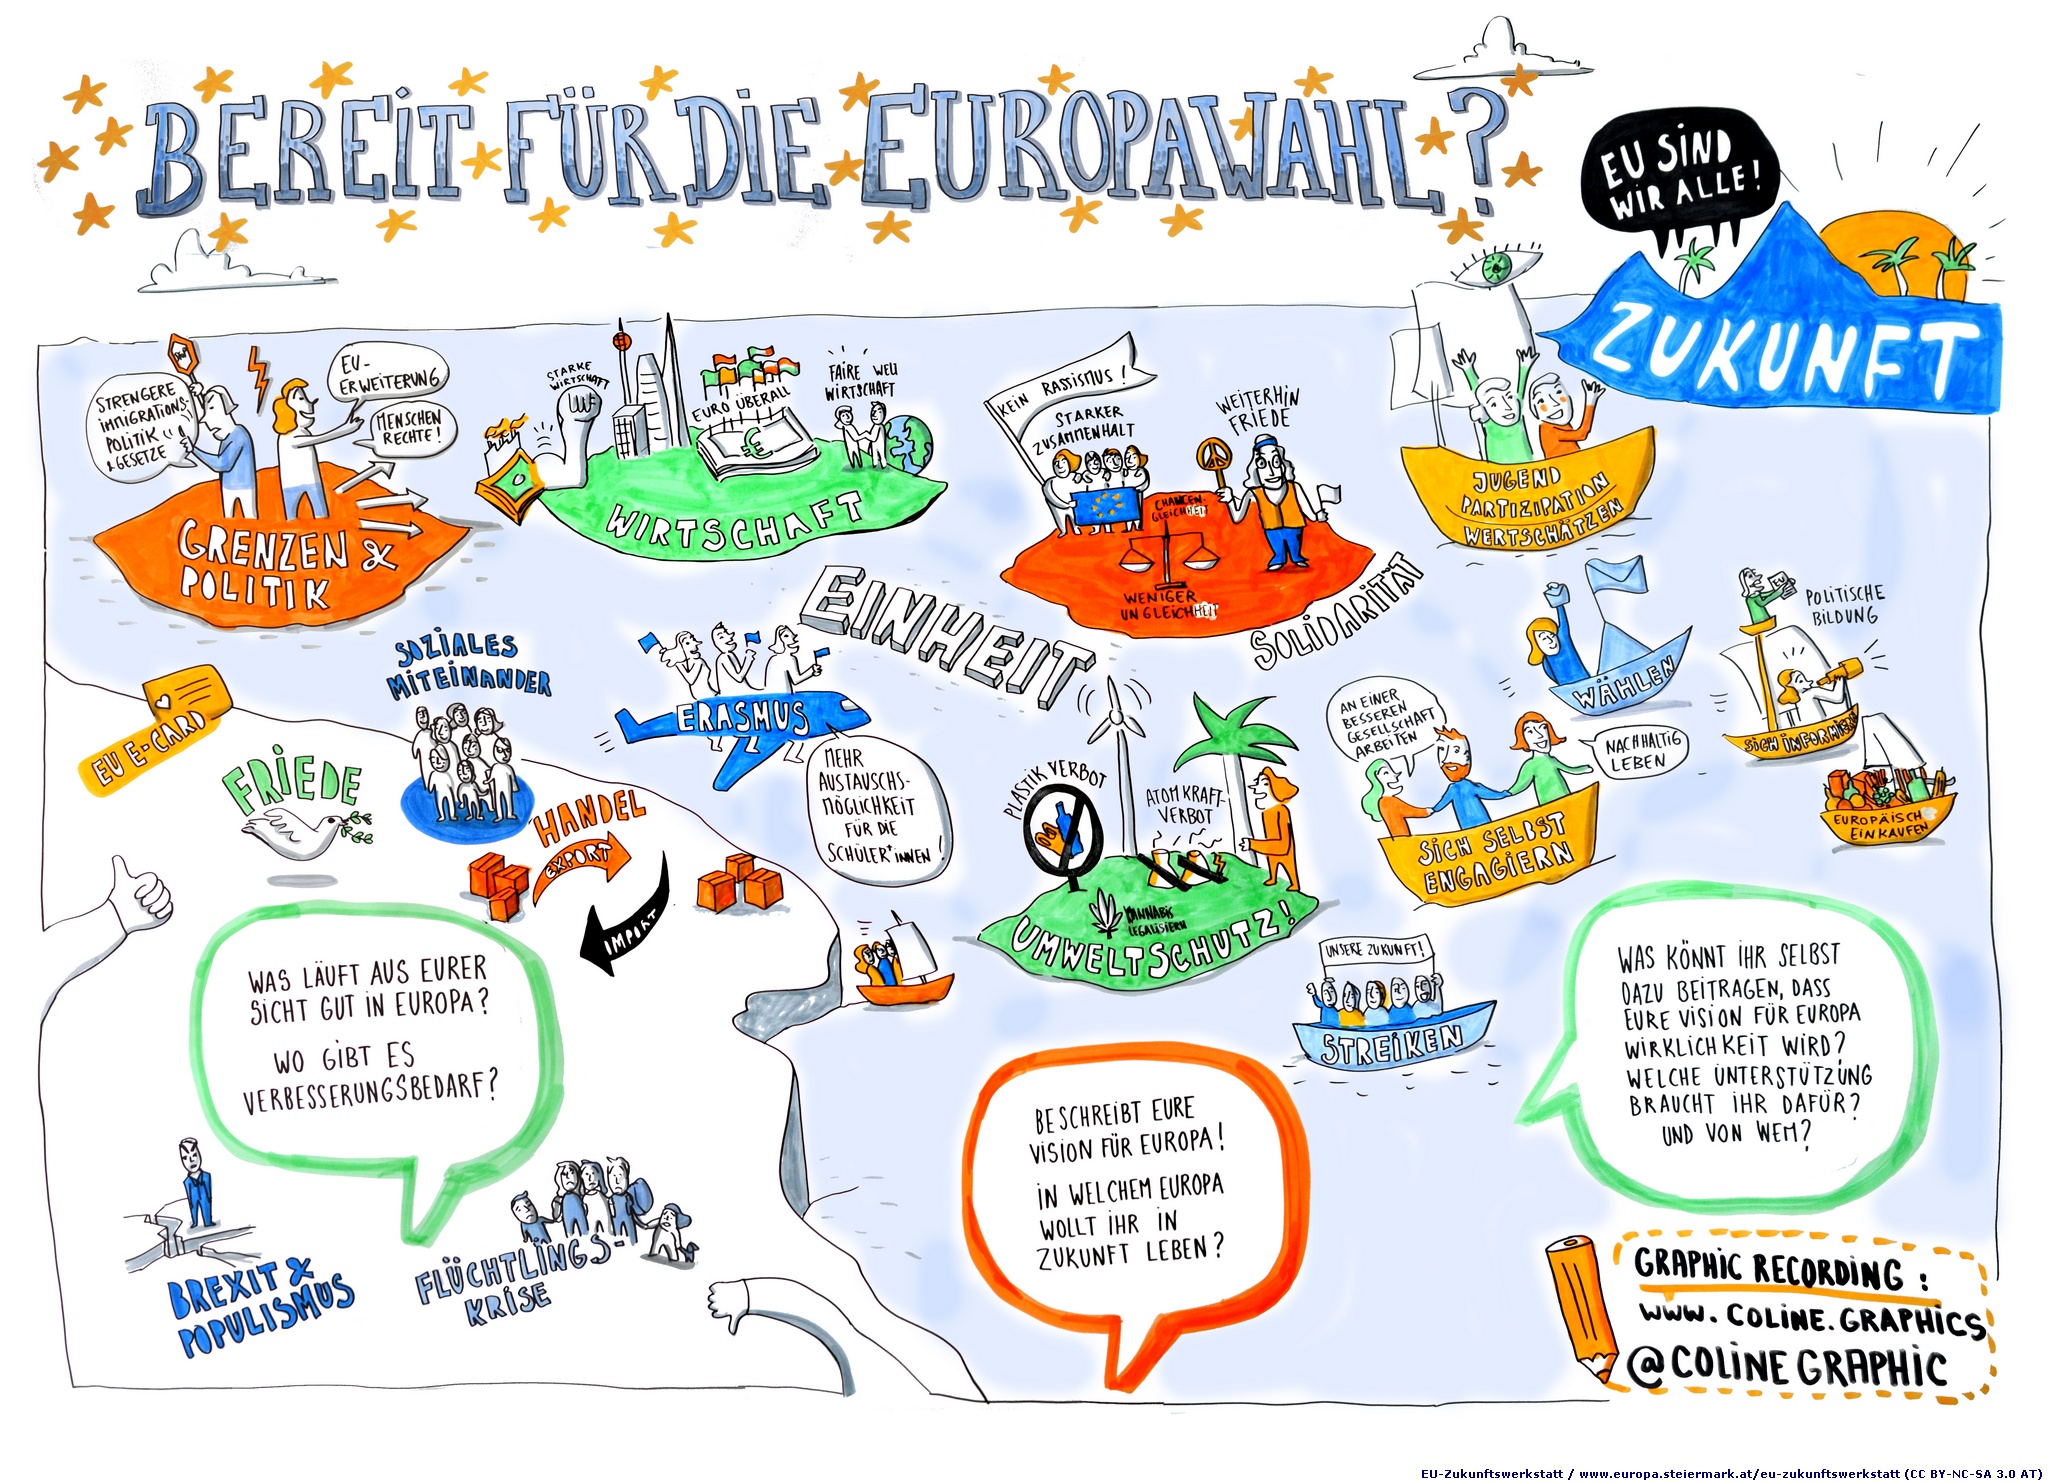 BEREIT FÜR DIE EUROPAWAHL?
EU SIND
WIR ALLE!
ZUKUNFT
STRENGERE
IMMIGRATIONS-
POLITIK
& GESETZE
STOP
EU-
ERWEITERUNG
MENSCHEN
RECHTE!
GRENZEN &
POLITIK
STARKE
WIRTSCHAFT
EURO ÜBERALL
€
FAIRE WELT
WIRTSCHAFT
WIRTSCHAFT
KEIN RASSISMUS!
STARKER
ZUSAMMENHALT
WEITERHIN
FRIEDE
CHANCEN-
GLEICHHEIT
WENIGER
UNGLEICHHEIT
SOLIDARITÄT
JUGEND
PARTIZIPATION
WERTSCHÄTZEN
EINHEIT
WÄHLEN
EU
POLITISCHE
BILDUNG
SICH INFORMIEREN
EUROPÄISCH
EINKAUFEN
SOZIALES
MITEINANDER
EU E-CARD
FRIEDE
ERASMUS
MEHR
AUSTAUSCHS-
MÖGLICHKEIT
FÜR DIE
SCHÜLER*INNEN!
HANDEL
EXPORT
IMPORT
PLASTIK VERBOT
ATOMKRAFT-
VERBOT
CANNABIS
LEGALISIERN
UMWELTSCHUTZ!
AN EINER
BESSEREN
GESELLSCHAFT
ARBEITEN
NACHHALTIG
LEBEN
SICH SELBST
ENGAGIERN
UNSERE ZUKUNFT!
STREIKEN
WAS LÄUFT AUS EURER
SICHT GUT IN EUROPA?
WO GIBT ES
VERBESSERUNGSBEDARF?
BREXIT &
POPULISMUS
FLÜCHTLINGS-
KRISE
BESCHREIBT EURE
VISION FÜR EUROPA!
IN WELCHEM EUROPA
WOLLT IHR IN
ZUKUNFT LEBEN?
WAS KÖNNT IHR SELBST
DAZU BEITRAGEN, DASS
EURE VISION FÜR EUROPA
WIRKLICHKEIT WIRD?
WELCHE UNTERSTÜTZUNG
BRAUCHT IHR DAFÜR?
UND VON WEM?
GRAPHIC RECORDING:
WWW.COLINE.GRAPHICS
@COLINEGRAPHIC
EU-Zukunftswerkstatt / www.europa.steiermark.at/eu-zukunftswerkstatt (CC BY-NC-SA 3.0 AT)